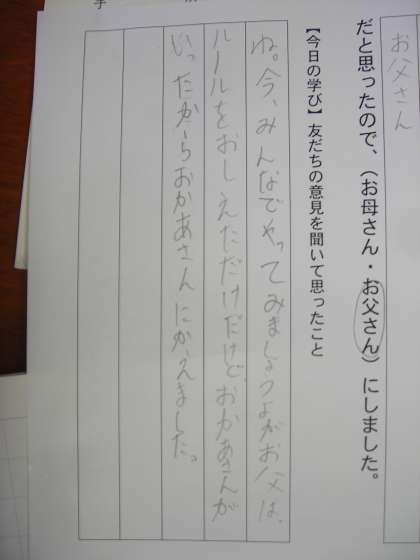 お父さん
だと思ったので、（お母さん・お父さん）にしました。
【今日の学び】友だちの意見を聞いて思ったこと
ね。今、みんなでやってみましょうよがお父は、
ルールをおしえただけだけど、おかあさんが
いったからおかあさんにかえました。